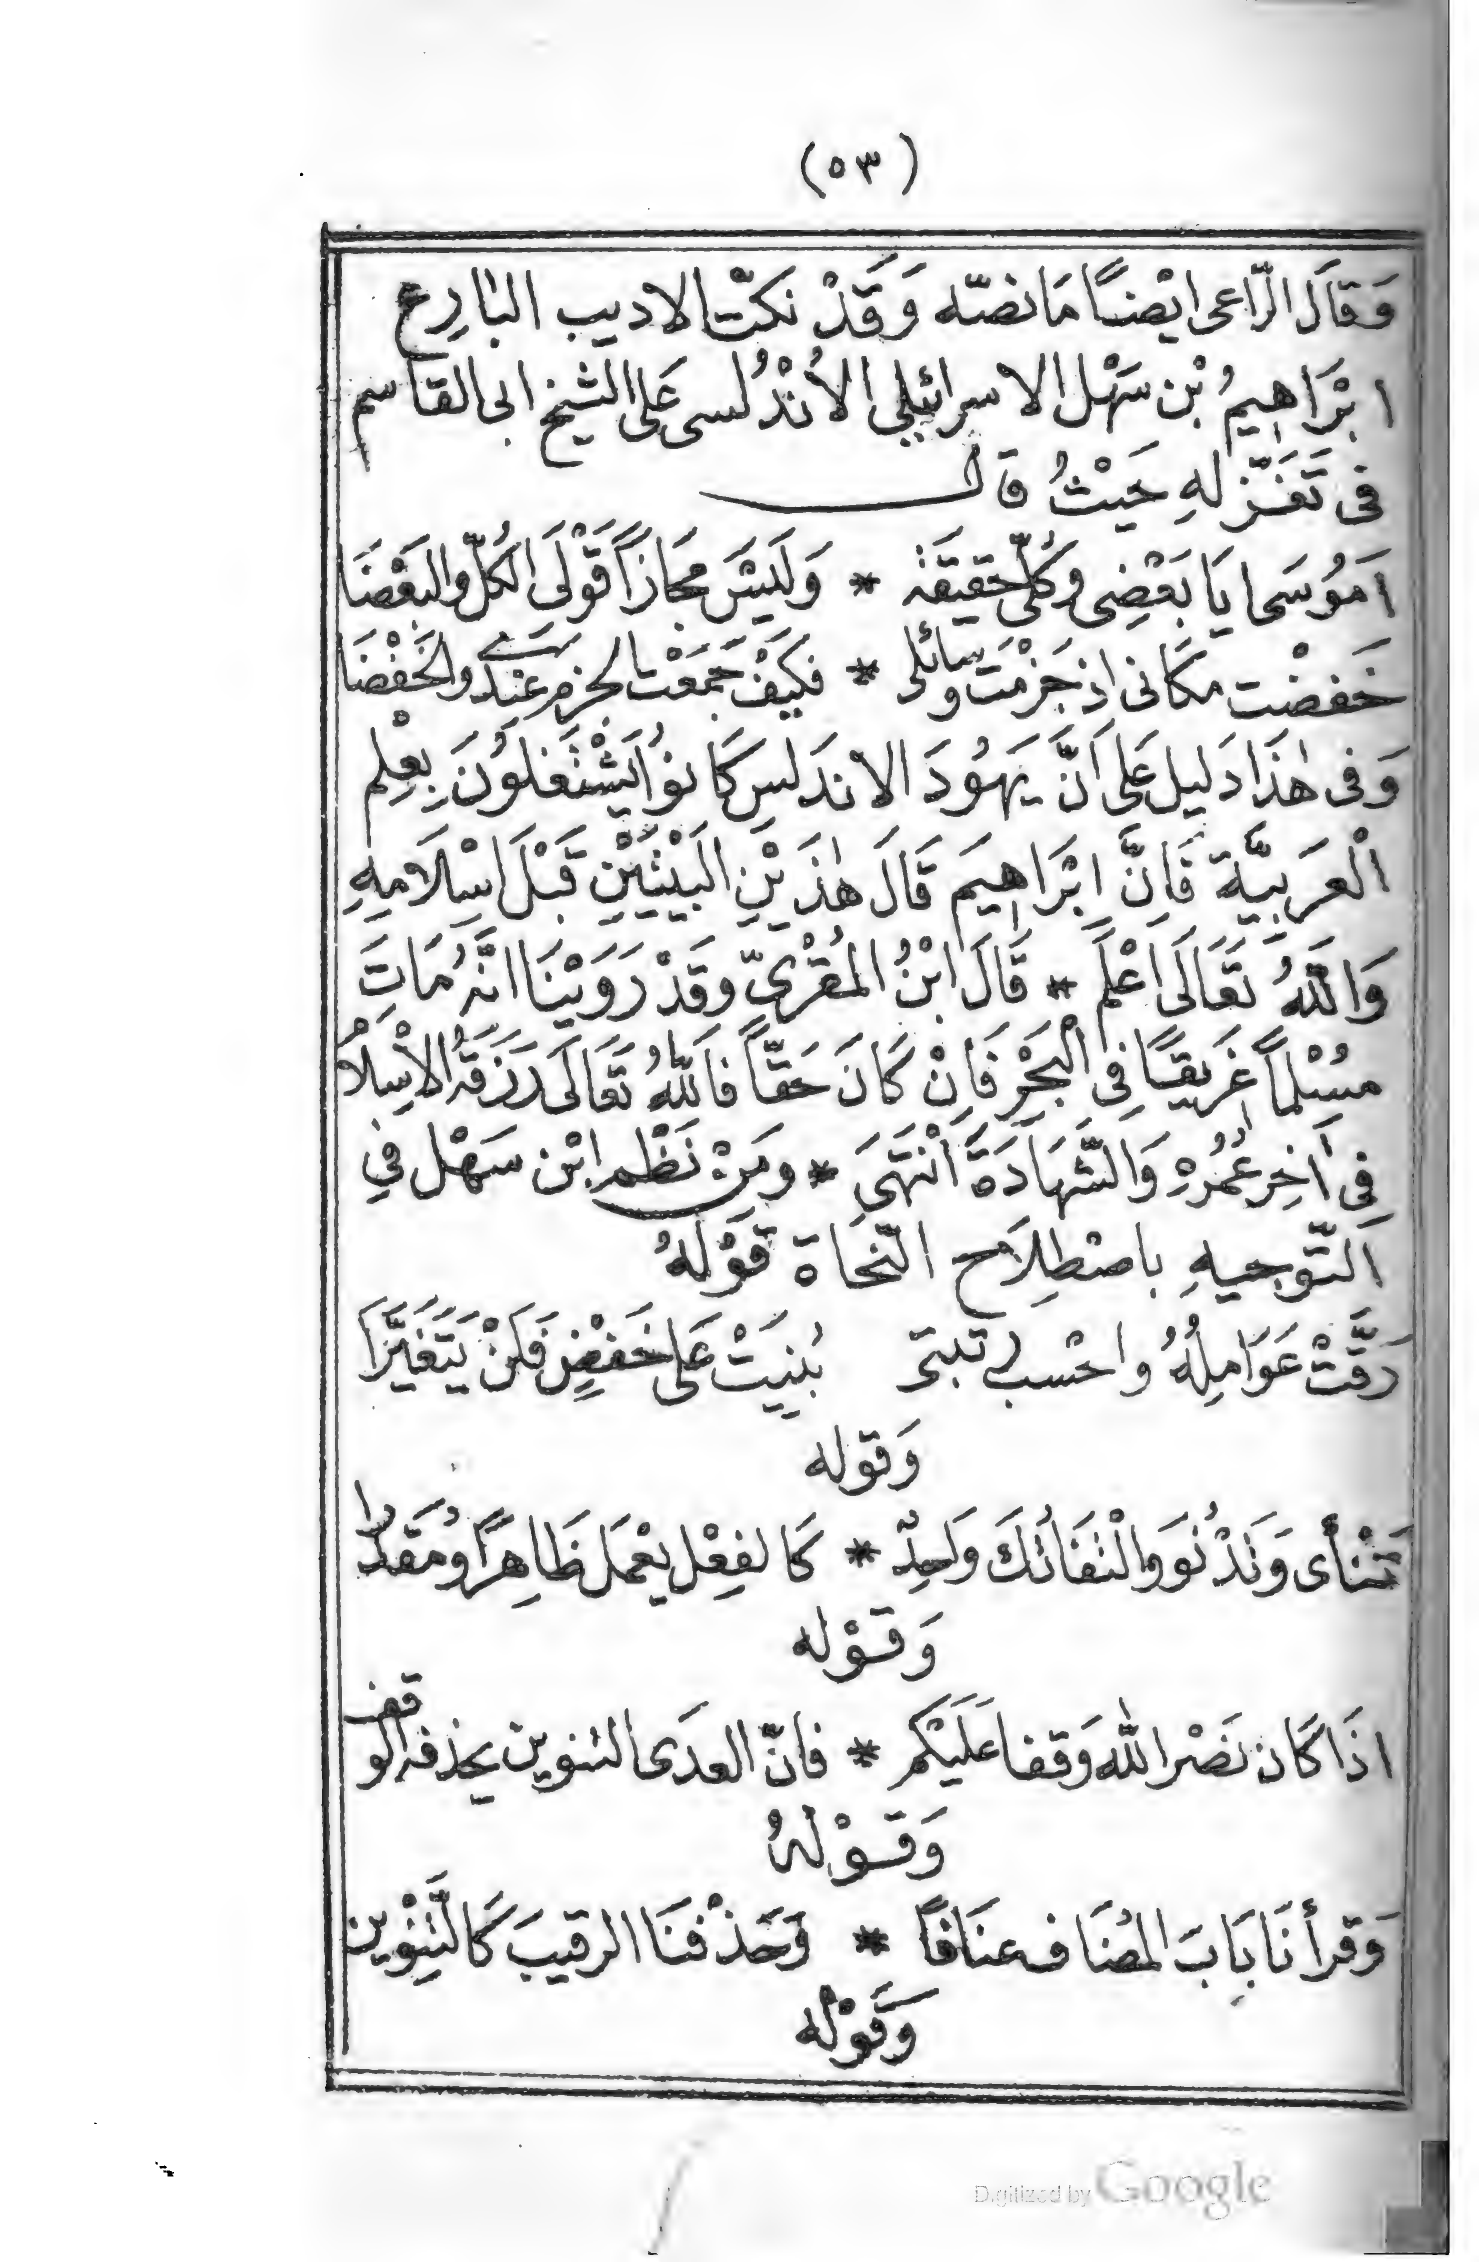 (٥٣)
وَقَالَ الرّاعى ايْضًا مَا نصّه وَقَدْ نكّت الاديب البارِع
ابْرَاهِيمُ بْن سَهْل الاسرائيلي الأنْدُلسى عَلى الشيخ ابى القاسم
فى تَغَزّلهِ حَيْثُ قَال
اَمُوسَى ايَا بَعْضِى وكُلّى حَقيقَة * وَلَيسَ مجَازًا قَوْلىَ الكُلّ والبَعْضَا
خَفضْت مكَانى اذ جَزمْتَ وسائلى * فكَيْفَ جَمَعْت الجزم عِنْدى والخَفْضَا
وَفى هٰذَا دَليل عَلى اَنَّ يَهُودَ الاندَلس كَانوُا يَشْتَغلوُنَ بِعْلِم
الْعَرَبيَّة فَاِنَّ ابْرَاهِيمَ قَالَ هٰذَيْنِ البَيْتَيْنِ قَبْلَ اسْلَامِهِ
وَاللّهُ تَعَالَى اَعْلَم * قَالَ ابْنُ المُقْرِىّ وقَدْ رَوَيْنَا انَّهُ مَاتَ
مُسْلمًا غَرِيقًا فِى الْبَحْرِ فَاِنْ كَانَ حَقًّا فَاللّهُ تَعَالَى رَزَقَهُ الاِسْلامَ
فِى اَخِرِ عُمُرِهِ وَالشَّهَادَةَ اَنْتَهَىَ * ومَنْ نَظْم ابْن سَهْل فِي
اَلتَّوجيهِ باصْطِلَاحِ النّحَاة قَوْلهُ
رَقَّتْ عَوَامِلُهُ واحْسب رتبتى بُنِيَتْ عَلى خَفْضٍ فَلَنْ يَتَغَيَّرَا
وَقوله
تَنْأى وَتَدْنُوَ والْتفَاتُكَ وَاحِدٌ * كَالفِعْل يَعْمَل ظَاهِرًا ومُقَدَّرا
وَقَوْله
اذَا كَان نَصْر اللّه وَقفا عَلَيْكم * فانّ العدَى التنوين يحذفه الوقف
وَقَوْلهُ
وَقرأنَا بَابَ المُضَاف عنَاقًا * وَحَذفْنَا الرقيبَ كَالتَّنْوِين
وَقَوْله
Digitized by Google